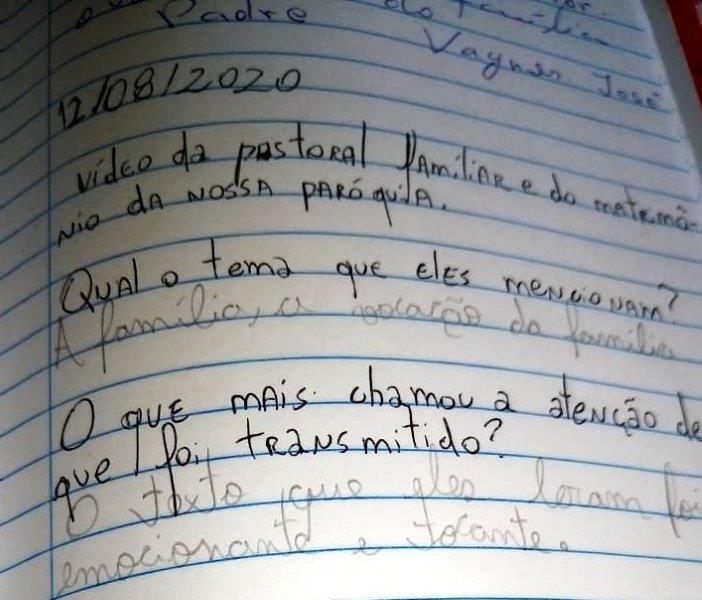 Padre do família
Vagner José
12/08/2020
vídeo da pastoral familiar e do matrimô-
nio da nossa paróquia.
Qual o tema que eles mencionam?
A família, a vocação da família
O que mais chamou a atenção de
que foi transmitido?
O texto que eles leram foi
emocionante e tocante.